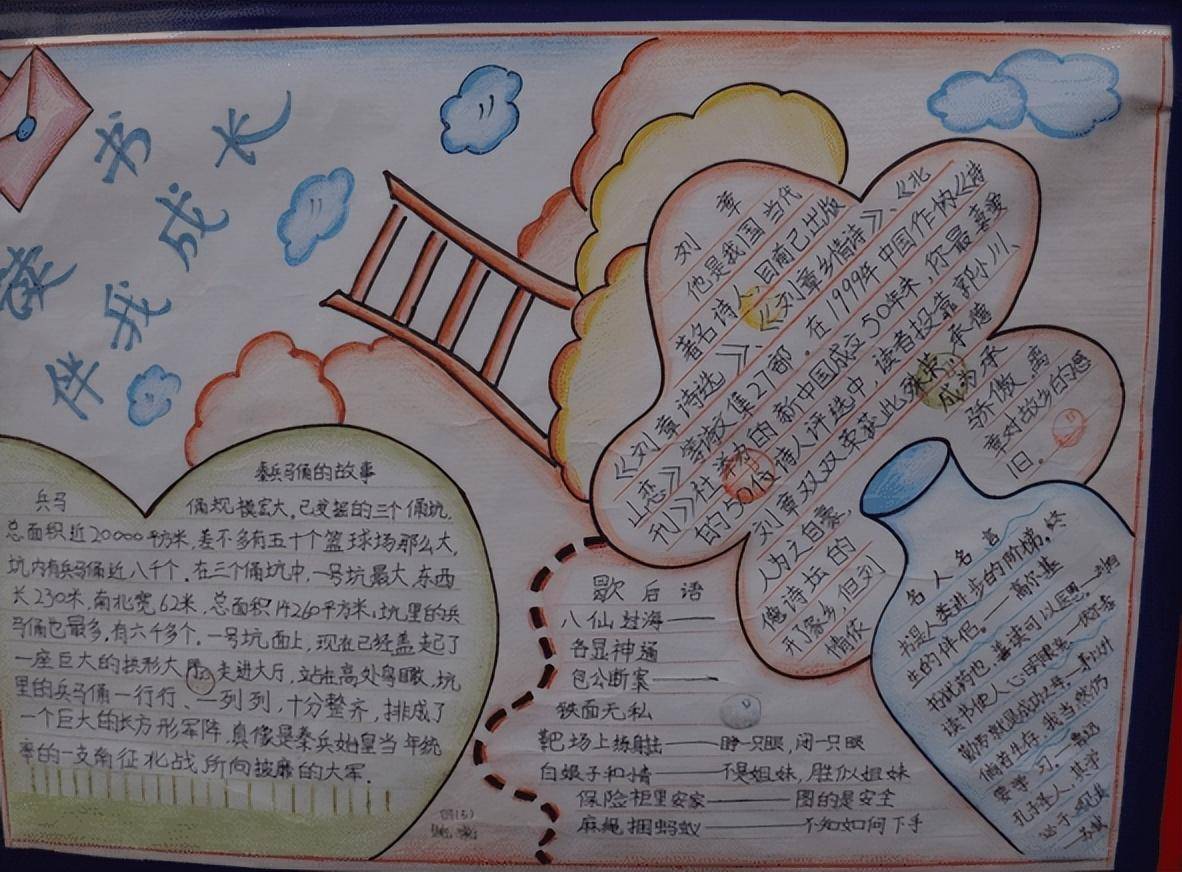 读书
伴我成长
秦兵马俑的故事
兵马 俑规模宏大。已发掘的三个俑坑,
总面积近20000平方米,差不多有五十个篮球场那么大,
坑内有兵马俑近八千个。在三个俑坑中,一号坑最大,东西
长230米,南北宽62米,总面积14260平方米;坑里的兵
马俑也最多,有六千多个。一号坑面上,现在已经盖起了
一座巨大的拱形大厅。走进大厅,站在高处鸟瞰,坑
里的兵马俑一行行、一列列,十分整齐,排成了
一个巨大的长方形军阵,真像是秦兵始皇当年统
率的一支南征北战、所向披靡的大军。
刘章
他是我国当代
著名诗人,目前已出版
《刘章诗选》、《刘章乡情诗》、《北
山恋》等诗文集27部。在1999年中国作协《诗
刊》社举办的新中国成立50年来,你最喜爱
的50位诗人评选中,读者投票郭小川、
刘章双双荣获此殊荣。承德
人为之自豪,成为承
德诗坛的骄傲,离
开了家乡,但刘章对故乡的感
情依旧。
歇后语
八仙过海——
各显神通
包公断案——
铁面无私
靶场上练射击——睁一只眼,闭一只眼
白娘子和小青——不是姐妹,胜似姐妹
保险柜里安家——图的是安全
麻绳捆蚂蚁——不知如何下手
名人名言
书是人类进步的阶梯,终
生的伴侣。——高尔基
书犹药也,善读可以医愚。——刘向
读书使人心明眼亮。——伏尔泰
我当然仍
要学习。——鲁迅